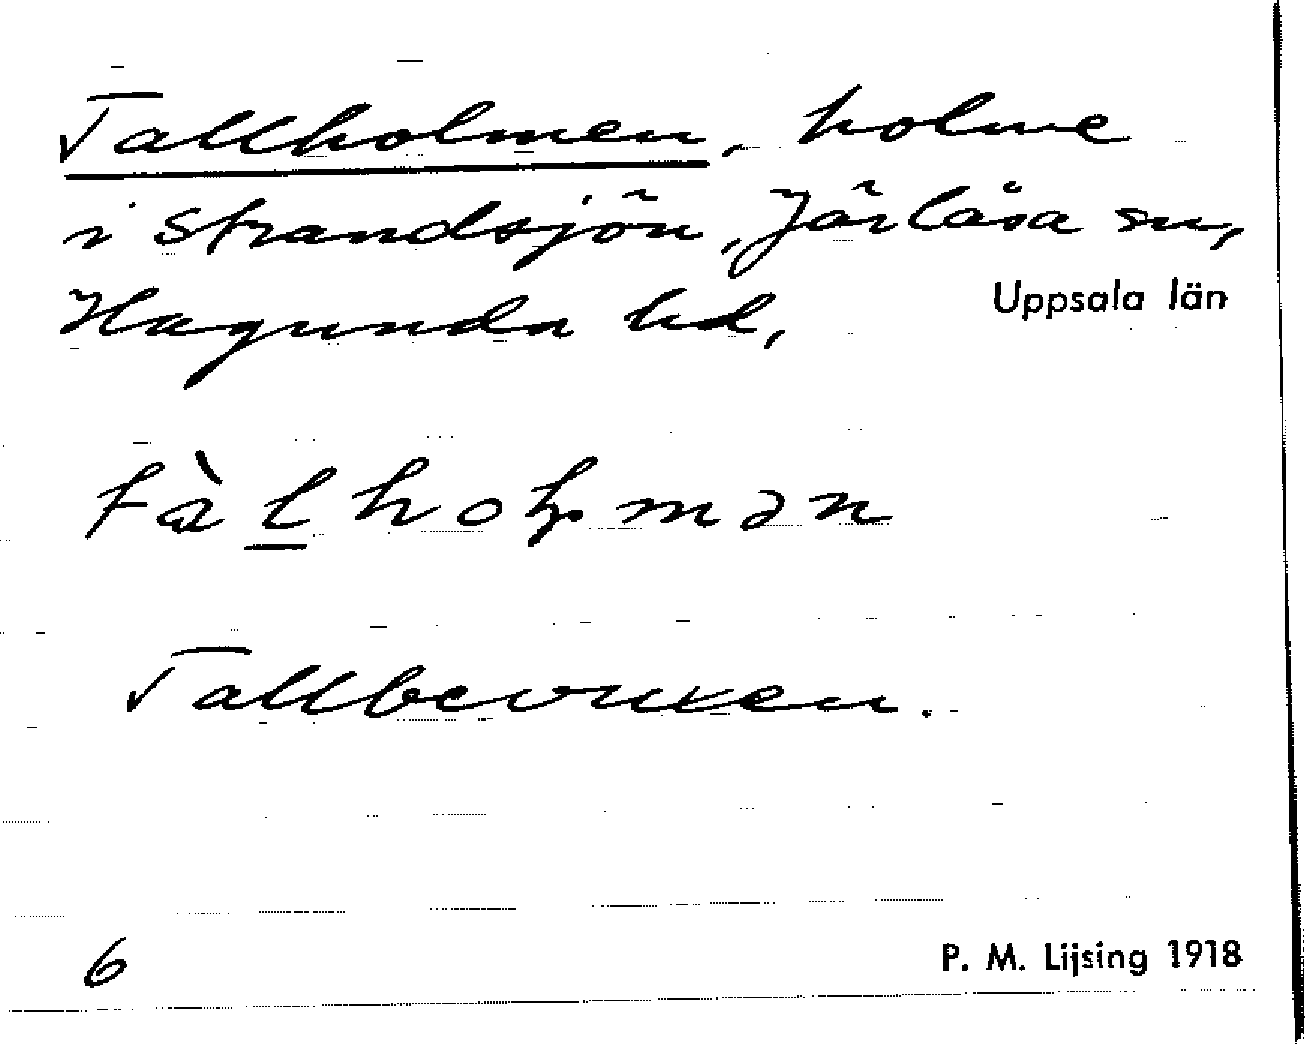 Tallholmen, holme
i Strandsjön, Järlåsa sn,
Hagunda hd, Uppsala län
tàl̲hoḷmən
Tallbevuxen.
6 P. M. Lijsing 1918